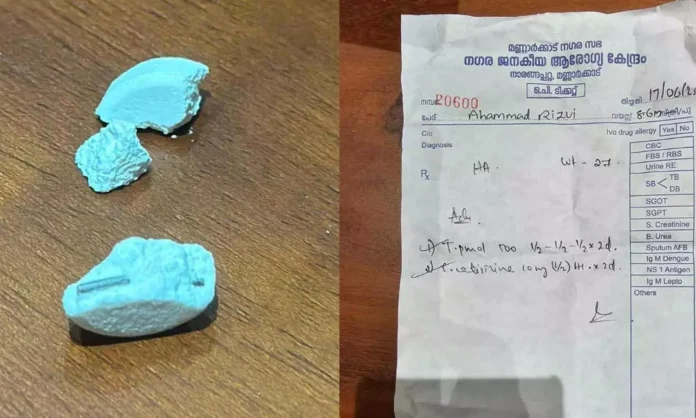 മണ്ണാർക്കാട് നഗര സഭ
നഗര ജനകീയ ആരോഗ്യ കേന്ദ്രം
നാരങ്ങപ്പറ്റ, മണ്ണാർക്കാട്
ഒ.പി. ടിക്കറ്റ്
നമ്പർ 20600 തീയ്യതി 17/06/2
പേര് Ahammad Rizvi വയസ്സ് 8
C/o h/o drug allergy Yes No
Diagnosis
CBC
FBS / RBS
Urine RE
SB TB
DB
SGOT
SGPT
S. Creatinine
B. Urea
Sputum AFB
Ig M Dengue
NS 1 Antigen
Ig M Lepto
Others
Rx HA. Wt - 27
Adv.
1) T. pmol 500 1/2 - 1/2 - 1/2 x 2d.
2) T. cetirizine 10mg (1/2) x 2d.